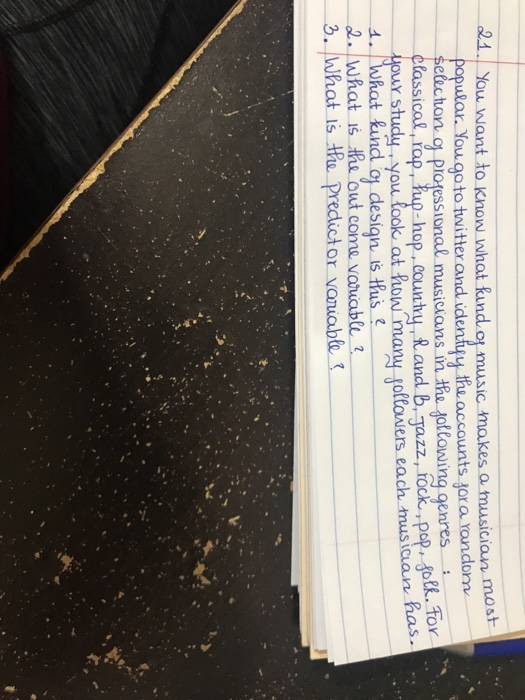 21. You want to know what kind of music makes a musician most
popular. You go to twitter and identify the accounts for a random
selection of professional musicians in the following genres :
classical, rap, hip-hop, country, R and B, Jazz, rock, pop, folk. For
your study, you look at how many followers each musician has.
1. What kind of design is this ?
2. What is the out come variable ?
3. What is the predictor variable ?